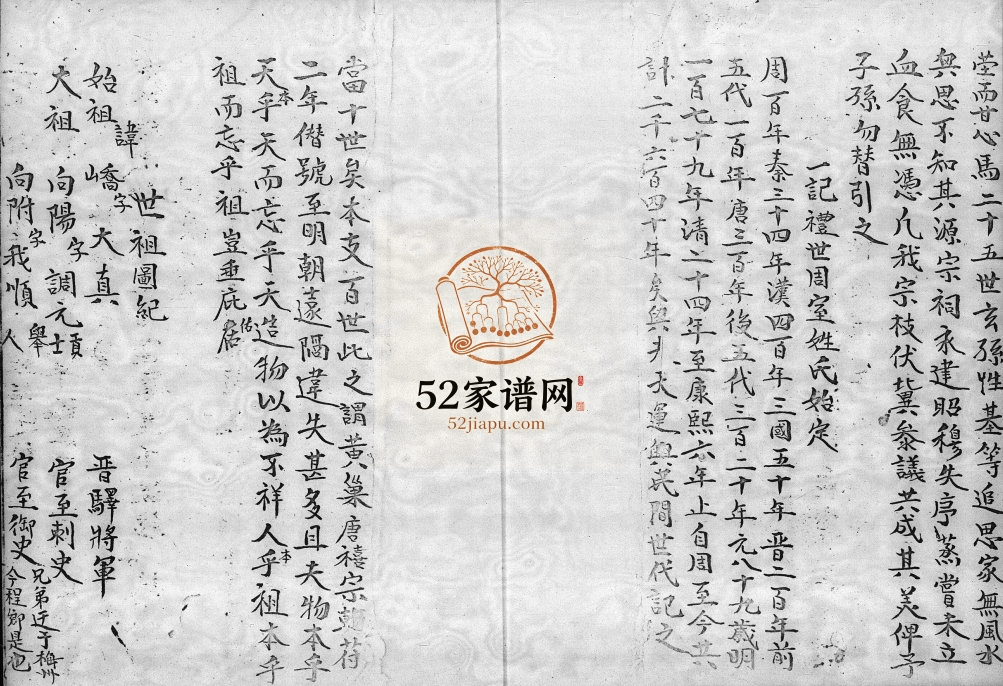 瑩而甘心馬二十五世玄孫性基等追思家無風水
與思不知其源宗祠未建昭穆失序蒸嘗未立
血食無憑凡我宗枝伏冀參議共成其美俾子
子孫勿替引之
一記禮世周室姓氏始定
周一百年秦三十四年漢四百年三國五十年晋二百年前
五代一百年唐三百年後五代三百二十年元八十九歲明
一百七十九年清二十四年至康熙六年止自周至今共
計二千六百四十年矣與天運與民間世代記之
當十世矣本支百世此之謂黃巢唐禧宗乾符
二年僭號至明朝遠隔違失甚多且夫物本乎
天乎本天而忘乎天造物以為不祥人乎本祖本乎
祖而忘乎祖豈垂庇佑
世祖圖紀
始祖 諱嶠字大真 晋驛將軍
大祖 向陽字調元貢士 官至刺史
向附字我順舉人 官至御史兄弟迁于梅州今程鄉是也
52家谱网
52jiapu.com